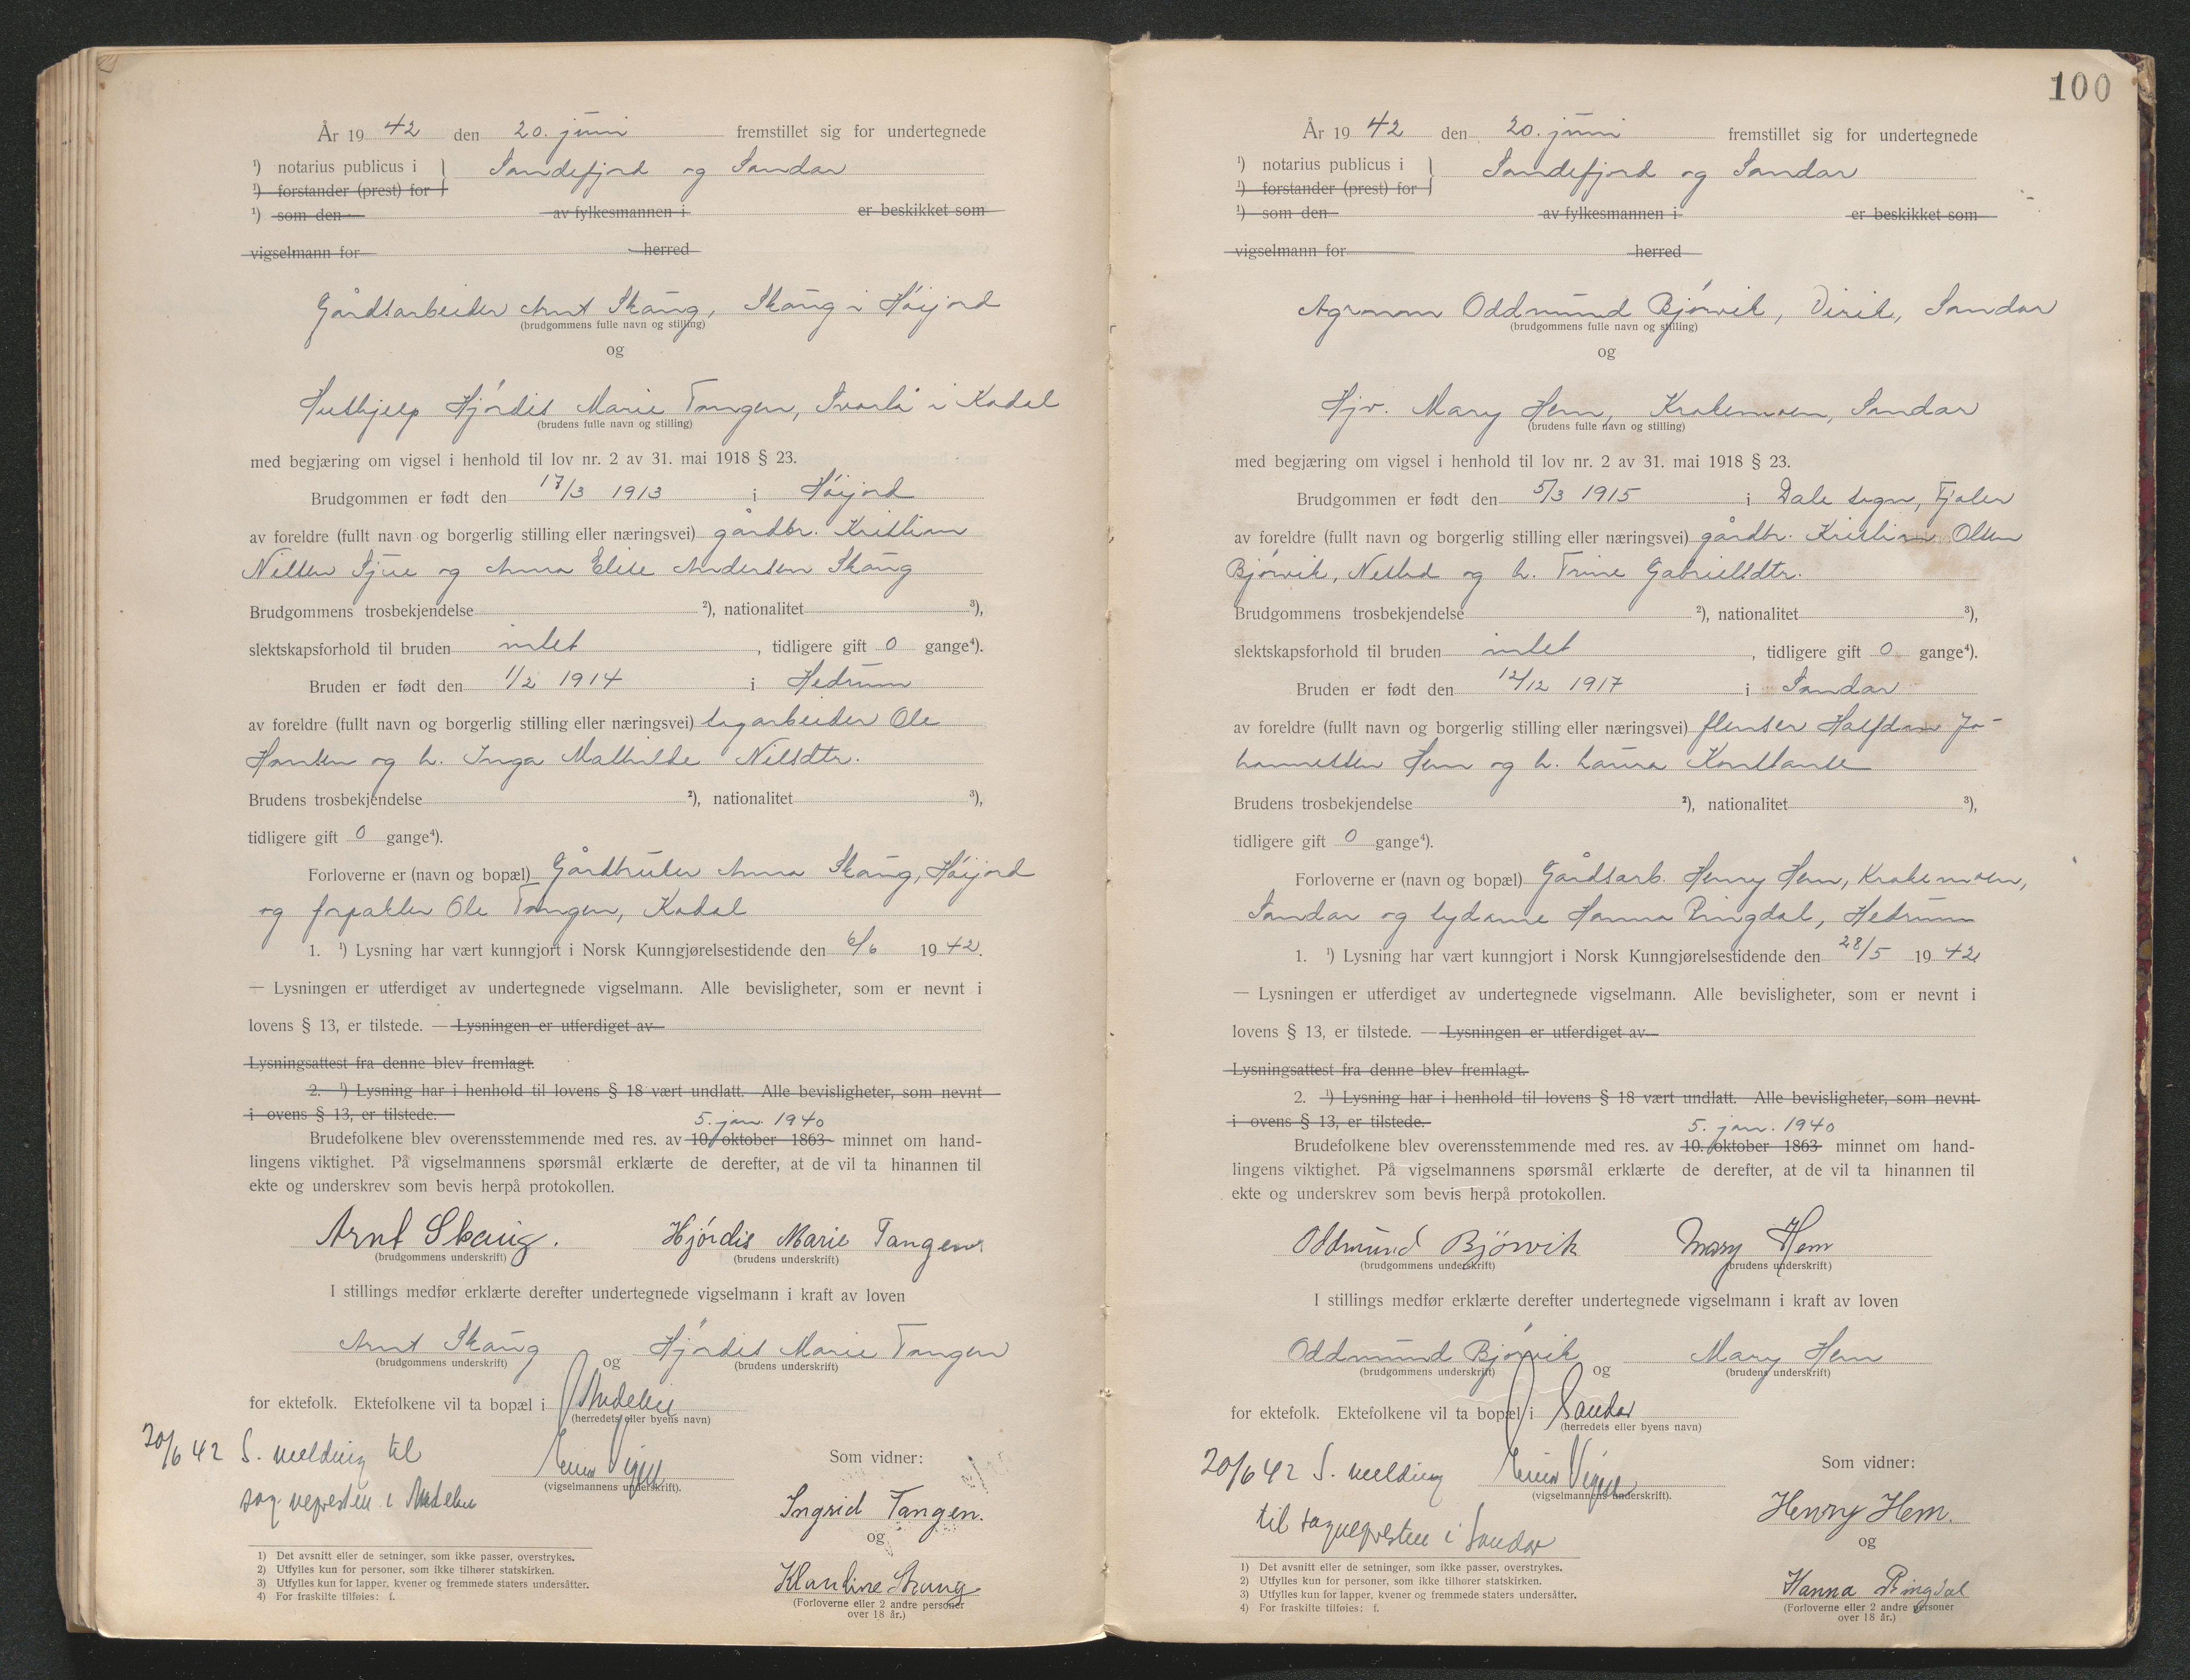 År 19 42 den 20. juni fremstillet sig for undertegnede
¹) notarius publicus i } Sandefjord og Sandar
¹) forstander (prest) for }
¹) som den av fylkesmannen i er beskikket som
vigselmann for herred
Gårdsarbeider Arnt Skaug, Skaug i Høijord
(brudgommens fulle navn og stilling)
og
Hushjelp Hjørdis Marie Tangen, i Kodal
(brudens fulle navn og stilling)
med begjæring om vigsel i henhold til lov nr. 2 av 31. mai 1918 § 23.
Brudgommen er født den 17/3 1913 i Høijord
av foreldre (fullt navn og borgerlig stilling eller næringsvei) gårdbr. Kristian
Nilsen og Anna Elise Andersen Skaug
Brudgommens trosbekjendelse ²), nationalitet ³),
slektskapsforhold til bruden intet , tidligere gift 0 gange⁴).
Bruden er født den 1/2 1914 i Hedrum
av foreldre (fullt navn og borgerlig stilling eller næringsvei) Ole
Hansen og h. Inga Mathilde Nilsdtr.
Brudens trosbekjendelse ²), nationalitet ³),
tidligere gift 0 gange⁴).
Forloverne er (navn og bopæl) Gårdbruker Anna Skaug, Høijord
og forpakter Ole Tangen, Kodal
1. ¹) Lysning har vært kunngjort i Norsk Kunngjørelsestidende den 6/6 19 42.
— Lysningen er utferdiget av undertegnede vigselmann. Alle bevisligheter, som er nevnt i
lovens § 13, er tilstede. — Lysningen er utferdiget av
Lysningsattest fra denne blev fremlagt.
2. ¹) Lysning har i henhold til lovens § 18 vært undlatt. Alle bevisligheter, som nevnt
i ovens § 13, er tilstede. —
5. jan. 1940
Brudefolkene blev overensstemmende med res. av 10. oktober 1863 minnet om hand-
lingens viktighet. På vigselmannens spørsmål erklærte de derefter, at de vil ta hinannen til
ekte og underskrev som bevis herpå protokollen.
Arnt Skaug. Hjørdis Marie Tangen
(brudgommens underskrift) (brudens underskrift)
I stillings medfør erklærte derefter undertegnede vigselmann i kraft av loven
Arnt Skaug og Hjørdis Marie Tangen
(brudgommens underskrift) (brudens underskrift)
for ektefolk. Ektefolkene vil ta bopæl i Andebu
(herredets eller byens navn)
20/6 42 S. melding til
sognepresten i Andebu
(vigselmannens underskrift).
Som vidner:
Ingrid Tangen.
og
Klaudine Skaug
(Forloverne eller 2 andre personer
over 18 år.)
1) Det avsnitt eller de setninger, som ikke passer, overstrykes.
2) Utfylles kun for personer, som ikke tilhører statskirken.
3) Utfylles kun for lapper, kvener og fremmede staters undersåtter.
4) For fraskilte tilføies: f.
100
År 19 42 den 20. juni fremstillet sig for undertegnede
¹) notarius publicus i } Sandefjord og Sandar
¹) forstander (prest) for }
¹) som den av fylkesmannen i er beskikket som
vigselmann for herred
Agronom Oddmund Bjørvik, Virik, Sandar
(brudgommens fulle navn og stilling)
og
Hjv. Mary Hem, Krakemoen, Sandar
(brudens fulle navn og stilling)
med begjæring om vigsel i henhold til lov nr. 2 av 31. mai 1918 § 23.
Brudgommen er født den 5/3 1915 i Dale sogn, Fjaler
av foreldre (fullt navn og borgerlig stilling eller næringsvei) gårdbr. Kristian Olsen
Bjørvik, og h. Trine Gabrielsdtr.
Brudgommens trosbekjendelse ²), nationalitet ³),
slektskapsforhold til bruden intet , tidligere gift 0 gange⁴).
Bruden er født den 12/12 1917 i Sandar
av foreldre (fullt navn og borgerlig stilling eller næringsvei) flenser Halfdan Jo-
hannessen Hem og h. Laura Konstanse
Brudens trosbekjendelse ²), nationalitet ³),
tidligere gift 0 gange⁴).
Forloverne er (navn og bopæl) Gårdsarb. Henry Hem, Krakemoen,
Sandar og sydame Hanna Ringdal, Hedrum
1. ¹) Lysning har vært kunngjort i Norsk Kunngjørelsestidende den 28/5 19 42
— Lysningen er utferdiget av undertegnede vigselmann. Alle bevisligheter, som er nevnt i
lovens § 13, er tilstede. — Lysningen er utferdiget av
Lysningsattest fra denne blev fremlagt.
2. ¹) Lysning har i henhold til lovens § 18 vært undlatt. Alle bevisligheter, som nevnt
i ovens § 13, er tilstede.
5. jan. 1940
Brudefolkene blev overensstemmende med res. av 10. oktober 1863 minnet om hand-
lingens viktighet. På vigselmannens spørsmål erklærte de derefter, at de vil ta hinannen til
ekte og underskrev som bevis herpå protokollen.
Oddmund Bjørvik Mary Hem
(brudgommens underskrift) (brudens underskrift)
I stillings medfør erklærte derefter undertegnede vigselmann i kraft av loven
Oddmund Bjørvik og Mary Hem
(brudgommens underskrift) (brudens underskrift)
for ektefolk. Ektefolkene vil ta bopæl i Sandar
(herredets eller byens navn)
20/6 42 S. melding
til sognepresten i Sandar
(vigselmannens underskrift).
Som vidner:
Henry Hem.
og
Hanna Ringdal
(Forloverne eller 2 andre personer
over 18 år.)
1) Det avsnitt eller de setninger, som ikke passer, overstrykes.
2) Utfylles kun for personer, som ikke tilhører statskirken.
3) Utfylles kun for lapper, kvener og fremmede staters undersåtter.
4) For fraskilte tilføies: f.